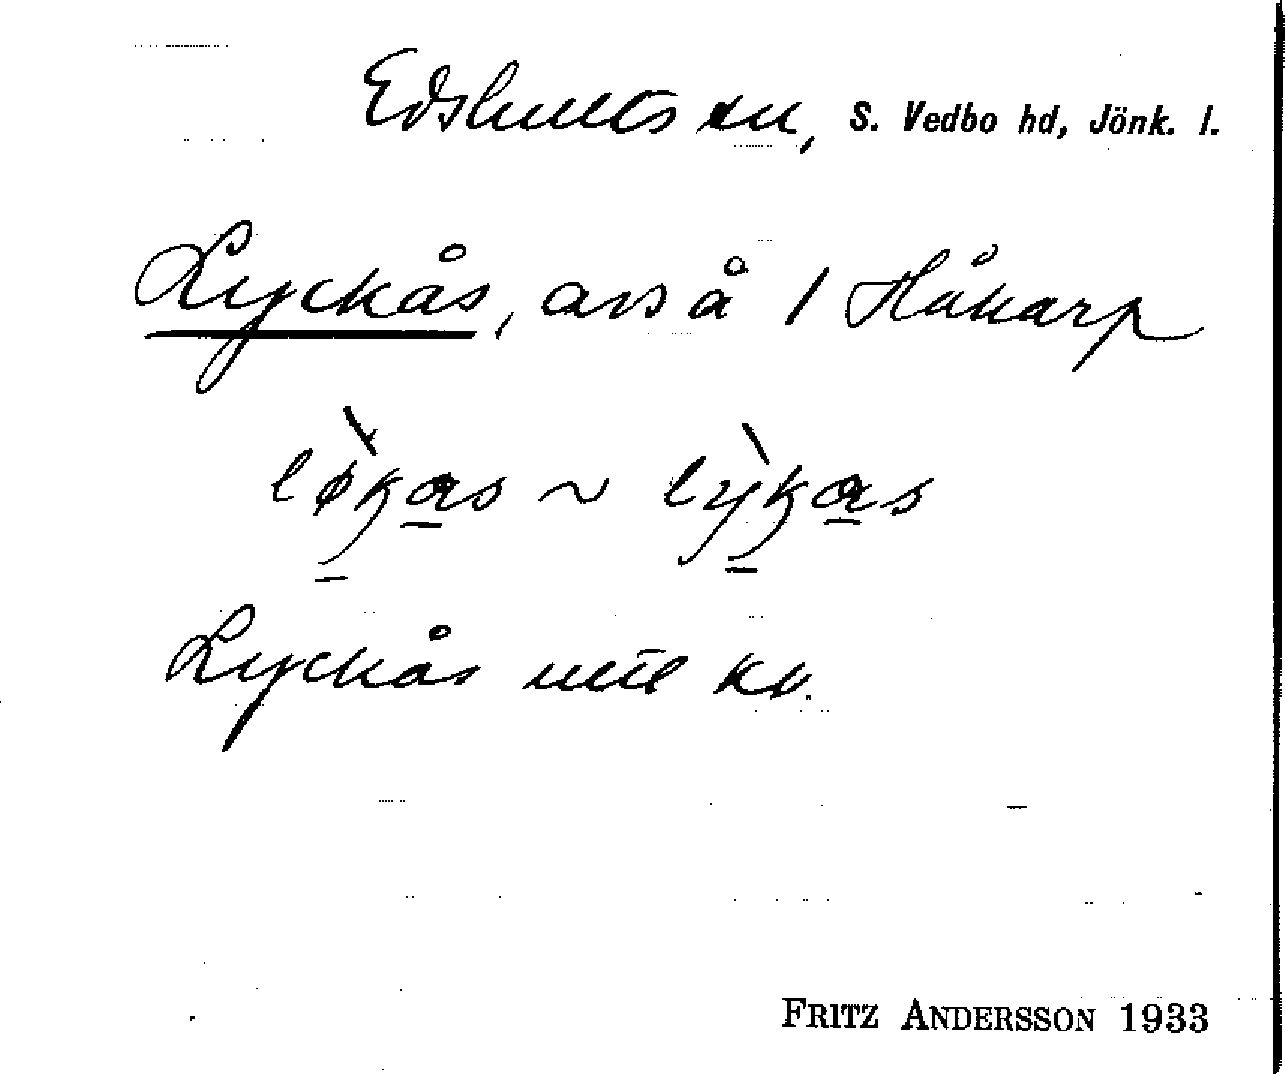 Edshults sn, S. Vedbo hd, Jönk. l.
Lyckås, avs å 1 Håkarp
lø̀kas ~ lỳkas
Lyckås utit kv.
FRITZ ANDERSSON 1933